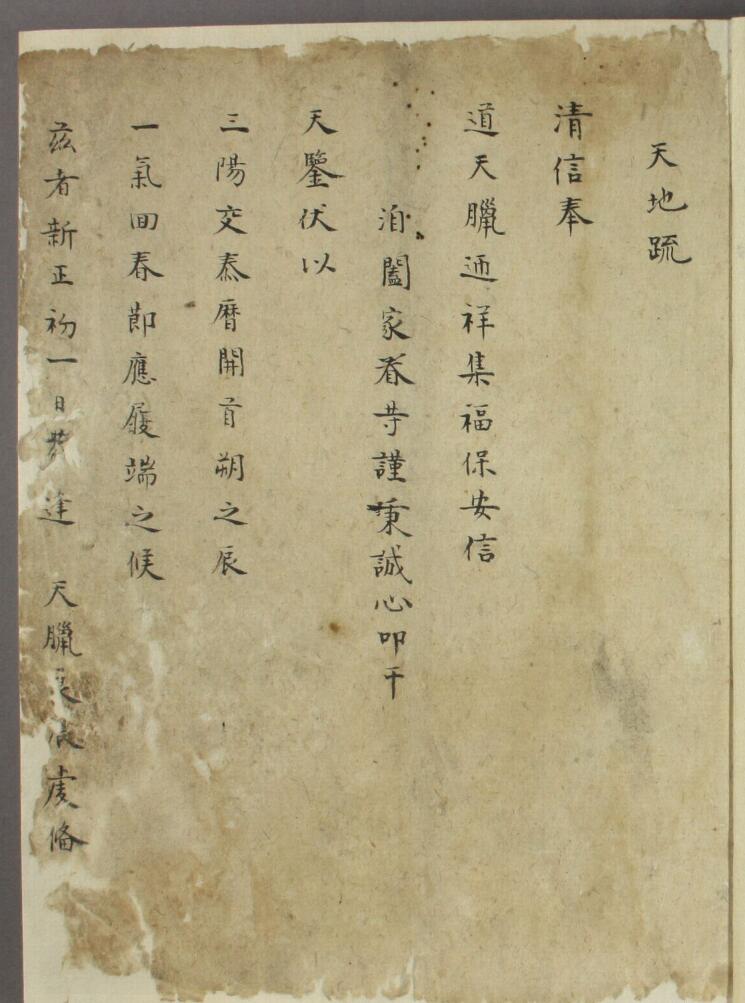 天地䟽
清信奉
道天臘迊祥集福保安信
洎闔家眷等謹秉誠心叩干
天鑒伏以
三陽交泰曆開首朔之辰
一氣囬春節應履端之候
茲者新正初一日恭逢 天臘良辰虔俻